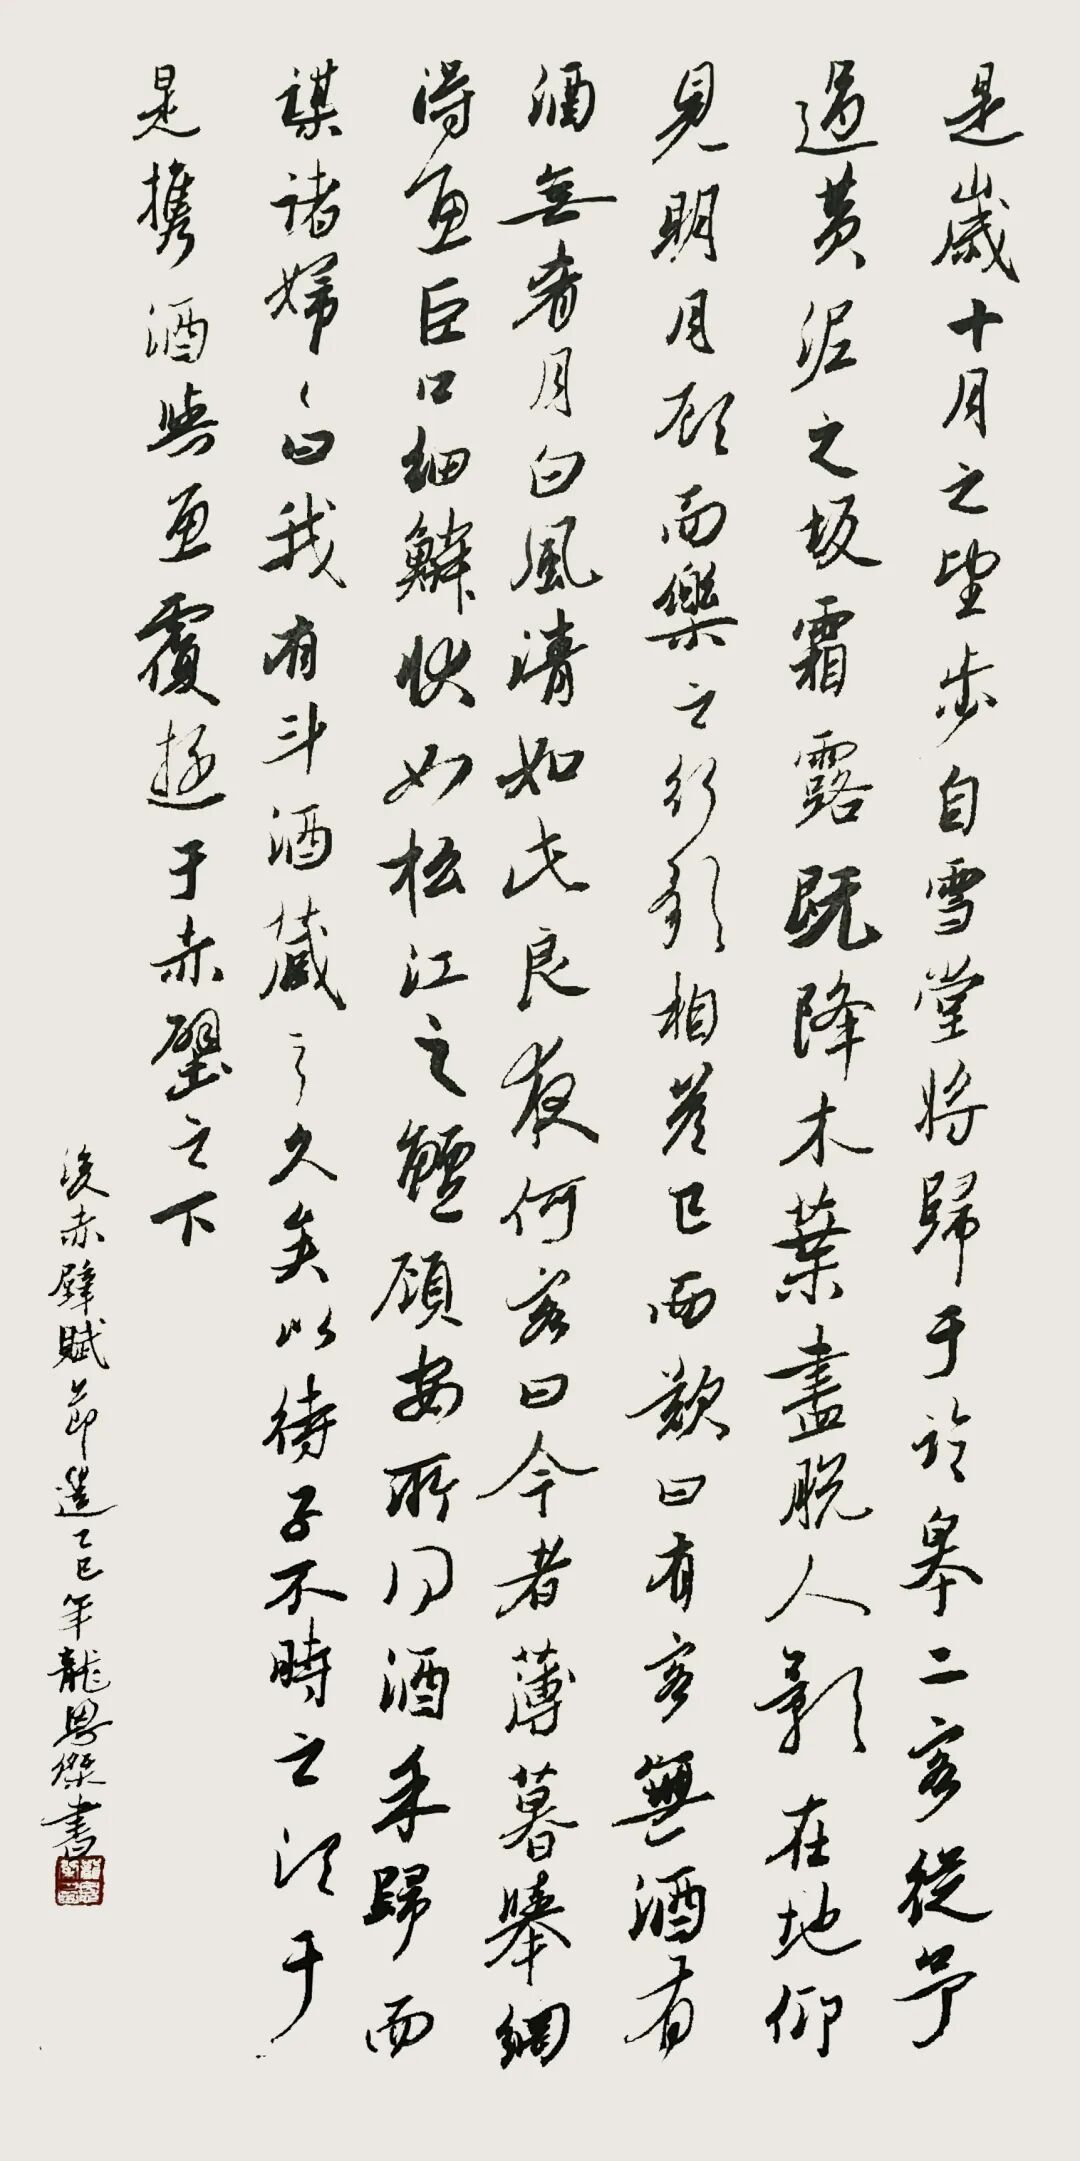 是歲十月之望步自雪堂將歸于臨皋二客從予
過黄泥之坂霜露既降木葉盡脱人影在地仰
見明月顾而樂之行歌相答已而歎曰有客無酒有
酒無肴月白風清如此良夜何客曰今者薄暮舉網
得魚巨口細鱗狀如松江之鱸顧安所得酒乎歸而
謀諸婦々曰我有斗酒藏之久矣以待子不時之須于
是攜酒與魚復遊于赤壁之下
後赤壁賦節選乙巳年龍恩傑書